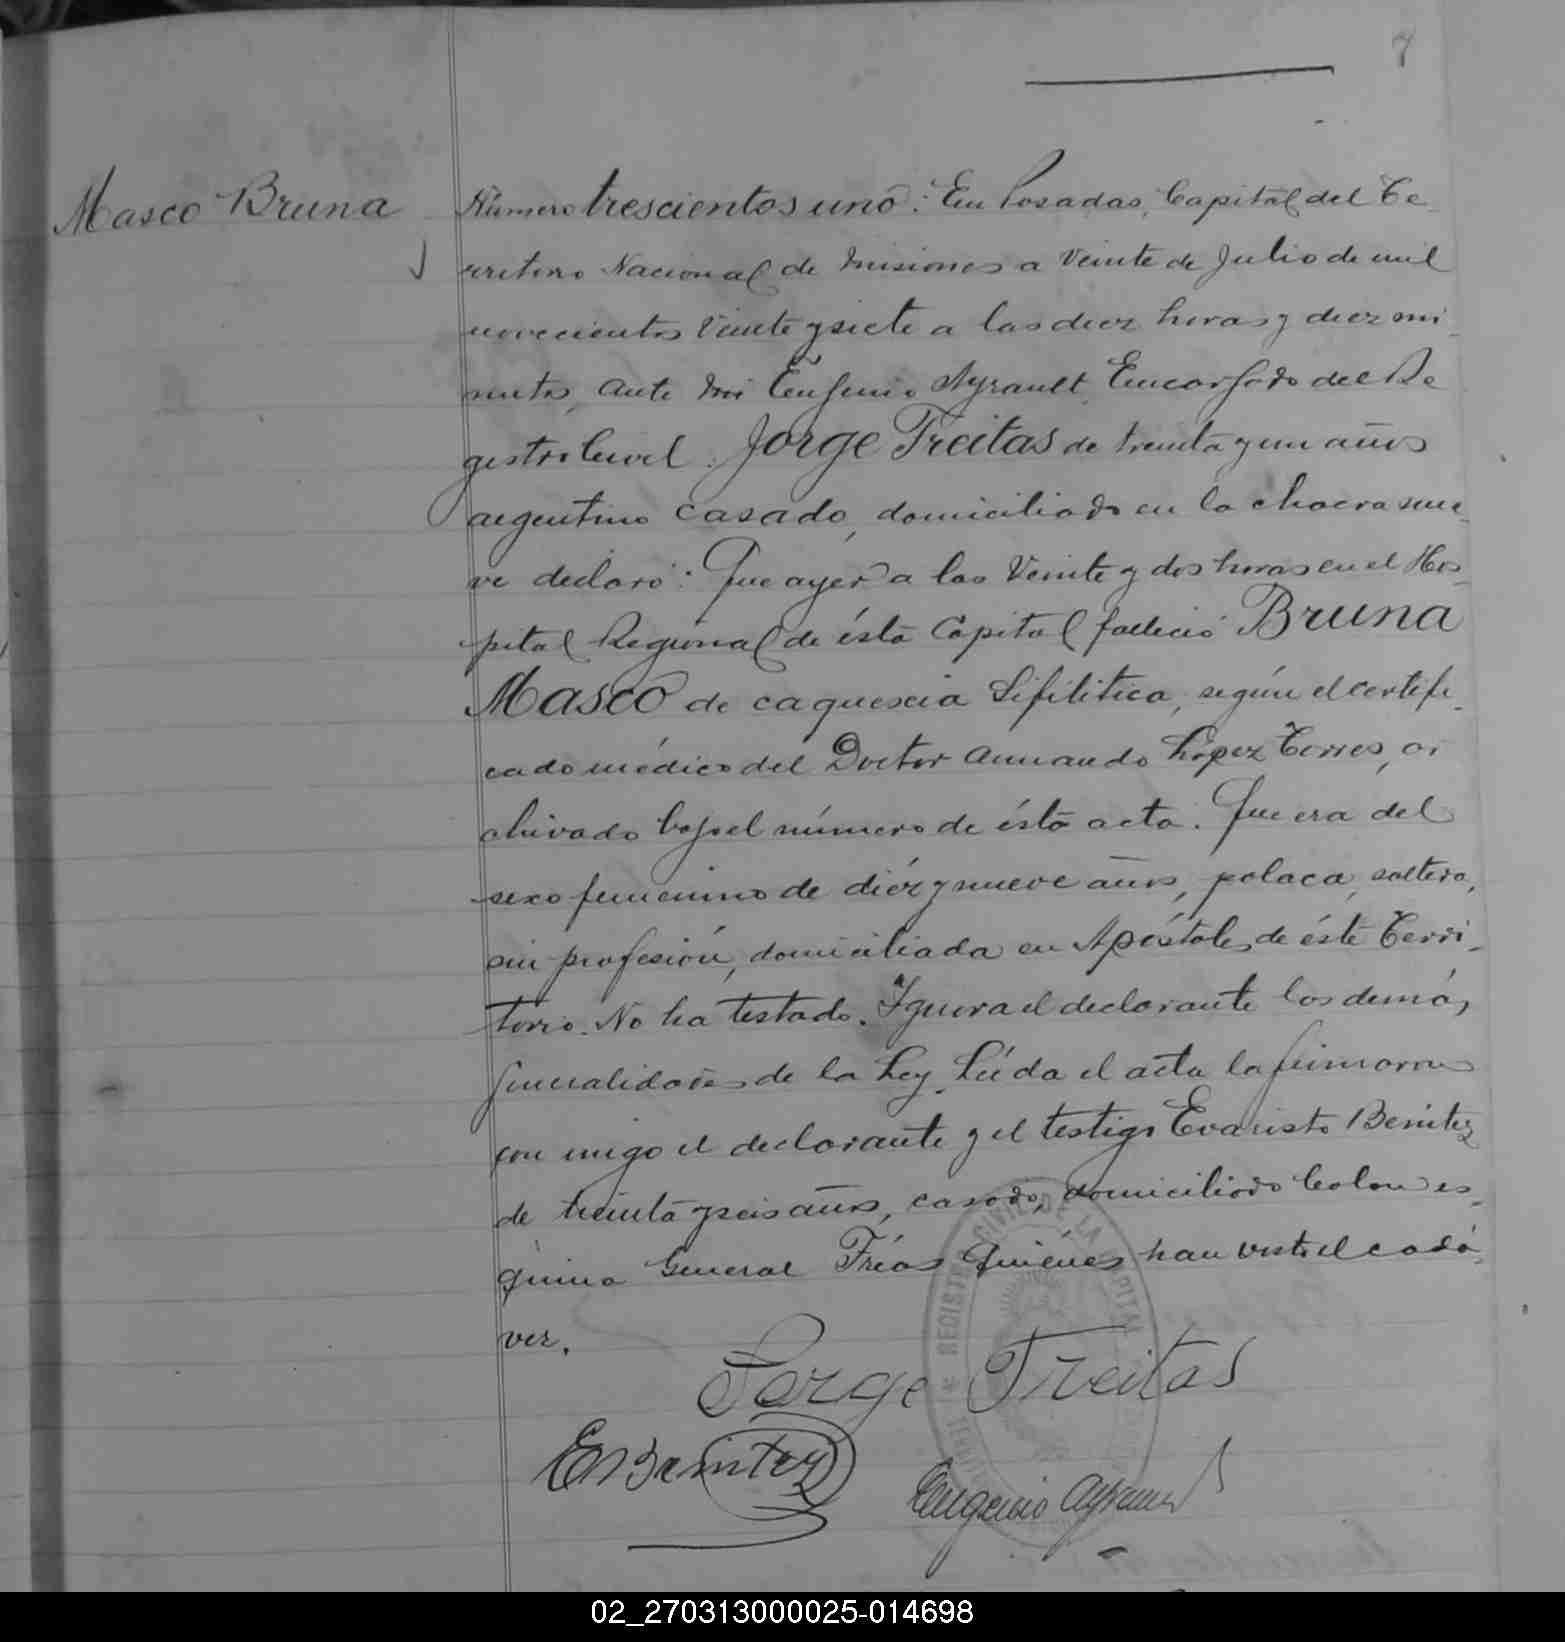 7
Masco Bruna
Número trescientos uno: En Posadas, Capital del Te-
rritorio Nacional de Misiones a veinte de Julio de mil
novecientos veinte y siete a las diez horas y diez mi-
nutos, ante mi Eugenio Ayrault, Encargado del Re
gistro Civil: Jorge Freitas de treinta y un años
argentino casado, domiciliado en la chacra nue-
ve declaró: Que ayer a las veinte y dos horas en el Hos-
pital Regional de ésta Capital falleció Bruna
Masco de caquescia Sifilitica, según el certifi-
cado médico del Doctor Armando López Torres, ar
chivado bajo el número de ésta acta. Que era del
sexo femenino de diéz y nueve años, polaca, soltera,
sin profesión, domiciliada en Apóstoles de éste Terri-
torio. No ha testado. Ignora el declarante las demás
generalidades de la Ley. Leída el acta la firmaron
con migo el declarante y el testigo Evaristo Benitez
de treinta y seis años, casado, domiciliado Colon es-
quina General Frías quiénes han visto el cadá-
ver.
Jorge Freitas
EBenitez
Eugenio Ayrault
REGISTRO CIVIL DE LA CAPITAL
02_270313000025-014698